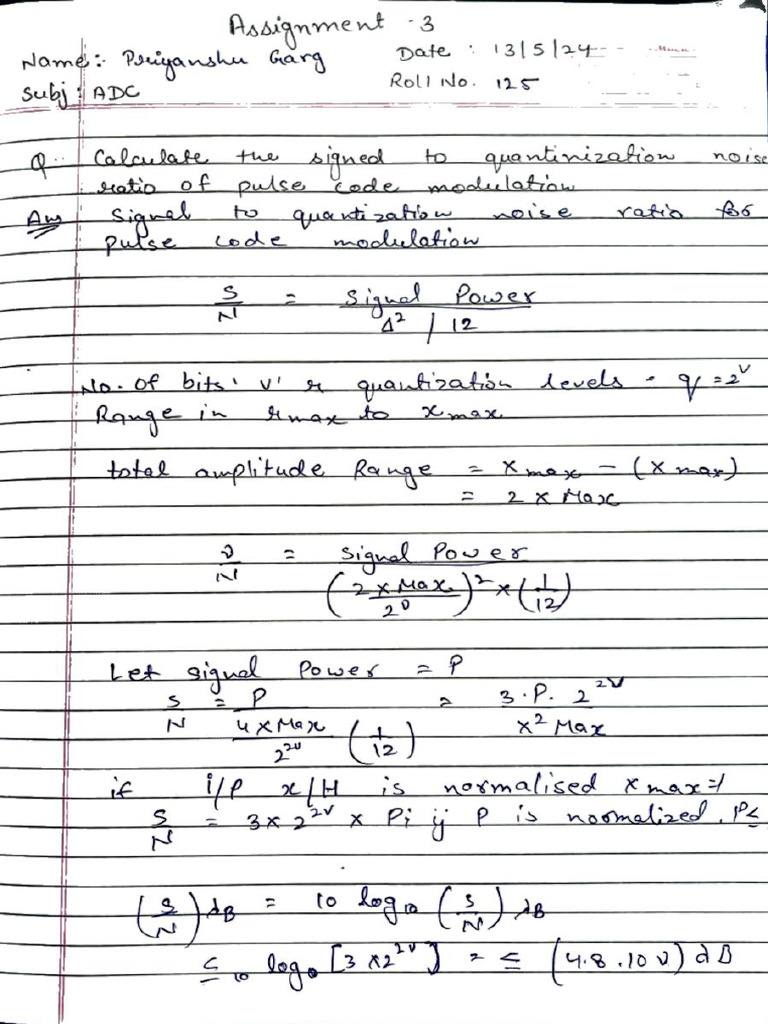 Assignment - 3
Name: Priyanshu Garg Date : 13/5/24
Subj : ADC Roll No. 125
Q. Calculate the signed to quantinization noise
ratio of pulse code modulation
Ans Signal to quantization noise ratio for
pulse code modulation
S/N = Signal Power / Δ² / 12
No. of bits 'v' & quantization levels - q = 2^v
Range in xmax to xmax
total amplitude Range = xmax - (xmax)
= 2 x Max
S/N = Signal Power / (2 x Max / 2^v)² x (1/12)
Let signal Power = P
S/N = P / (4 x Max / 2^2v) (1/12) = 3.P. 2^2v / x² Max
if i/p x/H is normalised xmax=1
S/N = 3 x 2^2v x Pi ij P is noomalized. P≤
(S/N) dB = 10 log10 (S/N) dB
≤ 10 log10 [3 x 2^2v] = ≤ (4.8 .10 v) dB